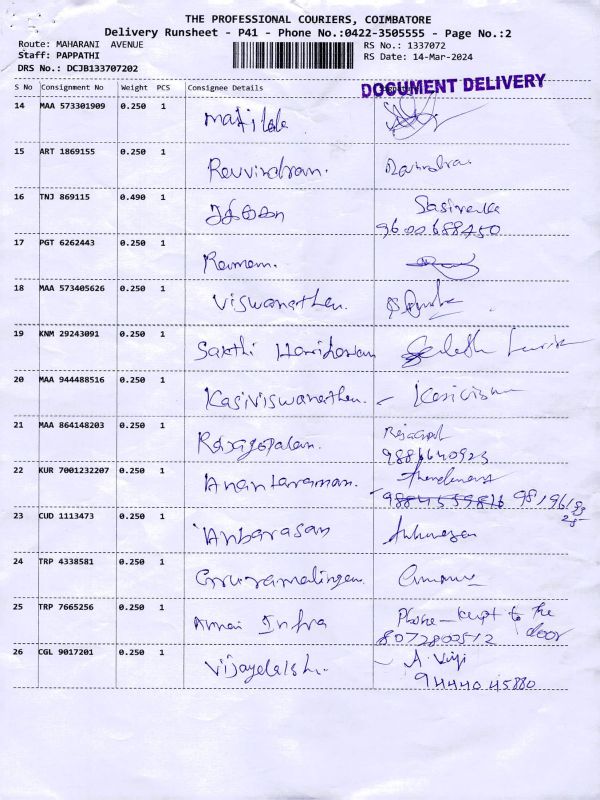 THE PROFESSIONAL COURIERS, COIMBATORE
Delivery Runsheet - P41 - Phone No.:0422-3505555 - Page No.:2
Route: MAHARANI AVENUE
RS No.: 1337072
Staff: PAPPATHI
RS Date: 14-Mar-2024
DRS No.: DCJB133707202
DOCUMENT DELIVERY
S No Consignment No Weight PCS Consignee Details
14 MAA 573301909 0.250 1
15 ART 1869155 0.250 1 Ravindran.
16 TNJ 869115 0.490 1 Sasireka
9600688450
17 PGT 6262443 0.250 1 Raman.
18 MAA 573405626 0.250 1 Viswanathan.
19 KNM 29243091 0.250 1 Sakthi Hariharan
20 MAA 944488516 0.250 1 Kasiviswanathan.
21 MAA 864148203 0.250 1 Rajagopalan. Rajagopal
9886640923
22 KUR 7001232207 0.250 1 Anantaraman.
23 CUD 1113473 0.250 1 Anbarasan
24 TRP 4338581 0.250 1 Gururamalingam
25 TRP 7665256 0.250 1 Annai Infra Phone - kept to the door
8072802512
26 CGL 9017201 0.250 1 Vijayalalsh. A. Viji
9444045880